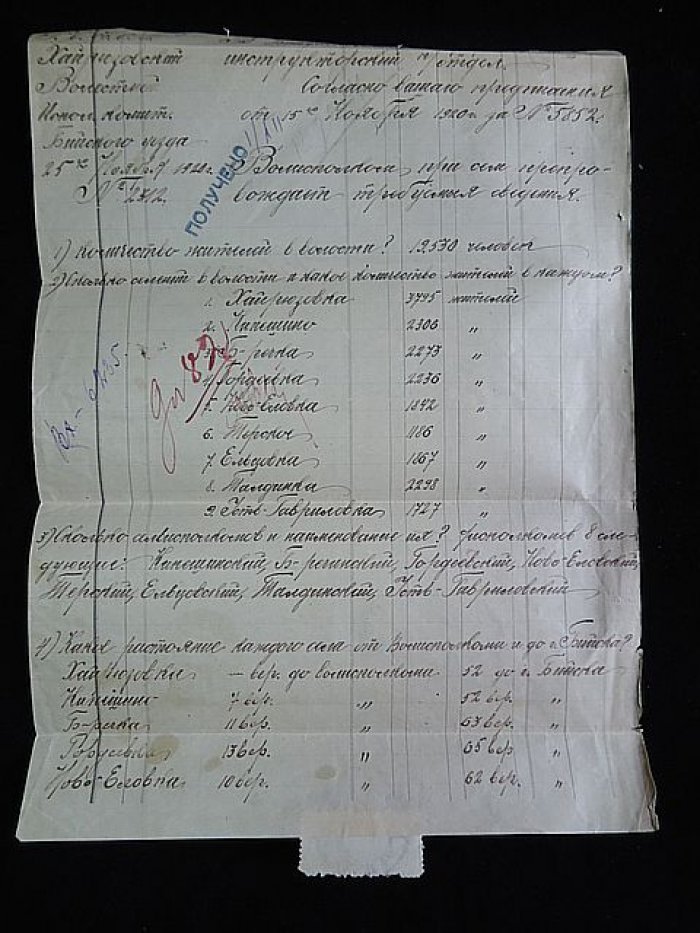 Хайрюзовский инструкторский п/отдел.
Волостной Согласно вашего предписания
Исполн. комит. от 15го Ноября 1920 г за № 5852.
Бийского уезда
25го Ноября 1920 г. Волисполком при сем препро-
№ 2412. вождает требуемыя сведения.
ПОЛУЧЕНО
1) Количество жителей в волости? 19.530 человек
2) Сколько селений в волости и какое количество жителей в каждом?
1. Хайрюзовка 3795 жителей
2. Кипешино 2306 "
3. Б-речка 2273 "
4. Гордеевка 2236 "
5. Ново-Еловка 1842 "
6. Терское 1186 "
7. Ельцовка 1867 "
8. Талдинка 2298 "
9. Усть-Гавриловка 1727 "
Вх - 6425.
3) Сколько сельисполкомов и наименование их? сисполкомов 8 сле-
дующие: Кипешинский, Б-реченский, Гордеевский, Ново-Еловский,
Терский, Ельцовский, Талдинский, Усть-Гавриловский
4) Какое растояние каждого села от Волисполкома и до г. Бийска?
Хайрюзовка — вер. до волисполкома 52 до г. Бийска
Кипешино 7 вер. " 52 вер. "
Б-речка 11 вер. " 63 вер. "
Гордеевка 13 вер. " 65 вер "
Ново-Еловка 10 вер. " 62 вер. "